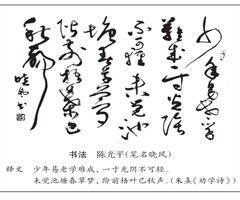 少年易老学
难成一寸光阴
不可轻未觉池
塘春草梦
阶前梧叶已
秋声
晓风书
书法 陈光平(笔名晓风)
释文 少年易老学难成，一寸光阴不可轻。
未觉池塘春草梦，阶前梧叶已秋声。(朱熹《劝学诗》)